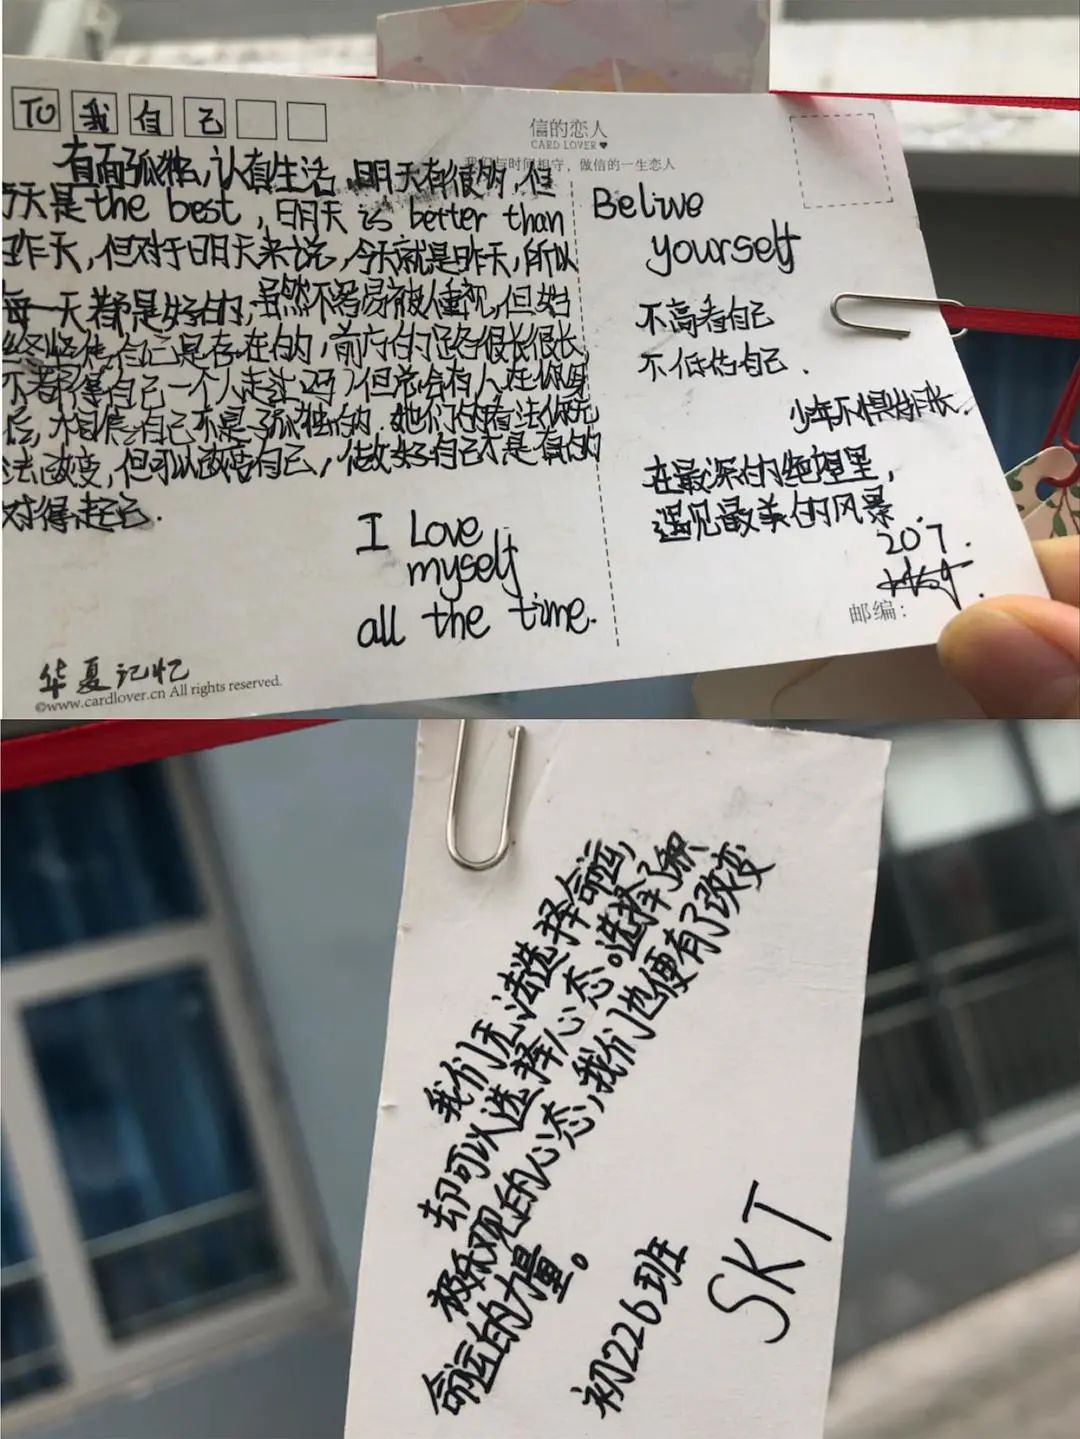 TO 我 自 己
信的恋人
CARD LOVER
我们与时间相守，做信的一生恋人
直面孤独，认真生活，明天有很多，但
今天是the best，明天is better than
昨天，但对于明天来说，今天就是昨天，所以
每一天都是好的，虽然不容易被人重视，但始
终坚信自己是存在的，前方的路很长很长，
不都得自己一个人走过吗？但总会有人在你身
后，相信自己不是孤独的，她们的看法你无
法改变，但可以改变自己，做好自己才是真的
对得起己.
I Love
myself
all the time.
华夏记忆
©www.cardlover.cn All rights reserved.
Belive
yourself
不高看自己
不低估自己.
少年不惧岁月长.
在最深的绝望里，
遇见最美的风景
207.
邮编：
我们无法选择命运，
却可以选择心态。选择了积
极乐观的心态，我们也便有了改变
命运的力量。
初226班
SKT